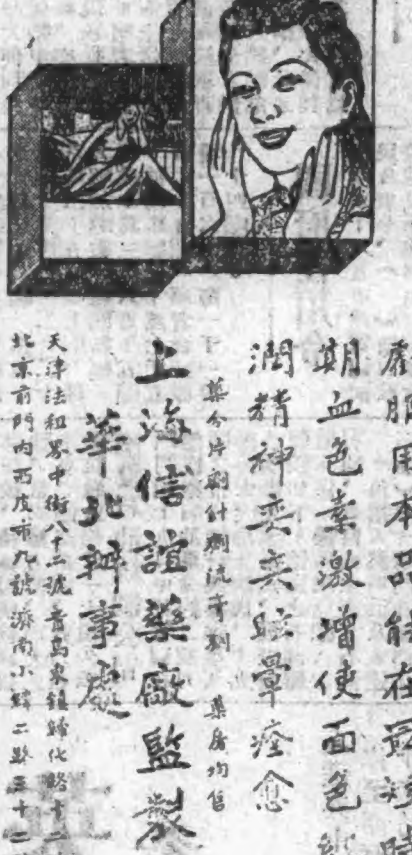 應服用本品能在最短時
期血色素激增使面色紅
潤精神奕奕眩暈痊愈
藥分片劑針劑流膏劑 藥房均售
上海信誼藥廠監製
華北辦事處
天津法租界中街八十二號青島東鎮歸化路十二
北京前門內西皮市九號濟南小緯二路三十二